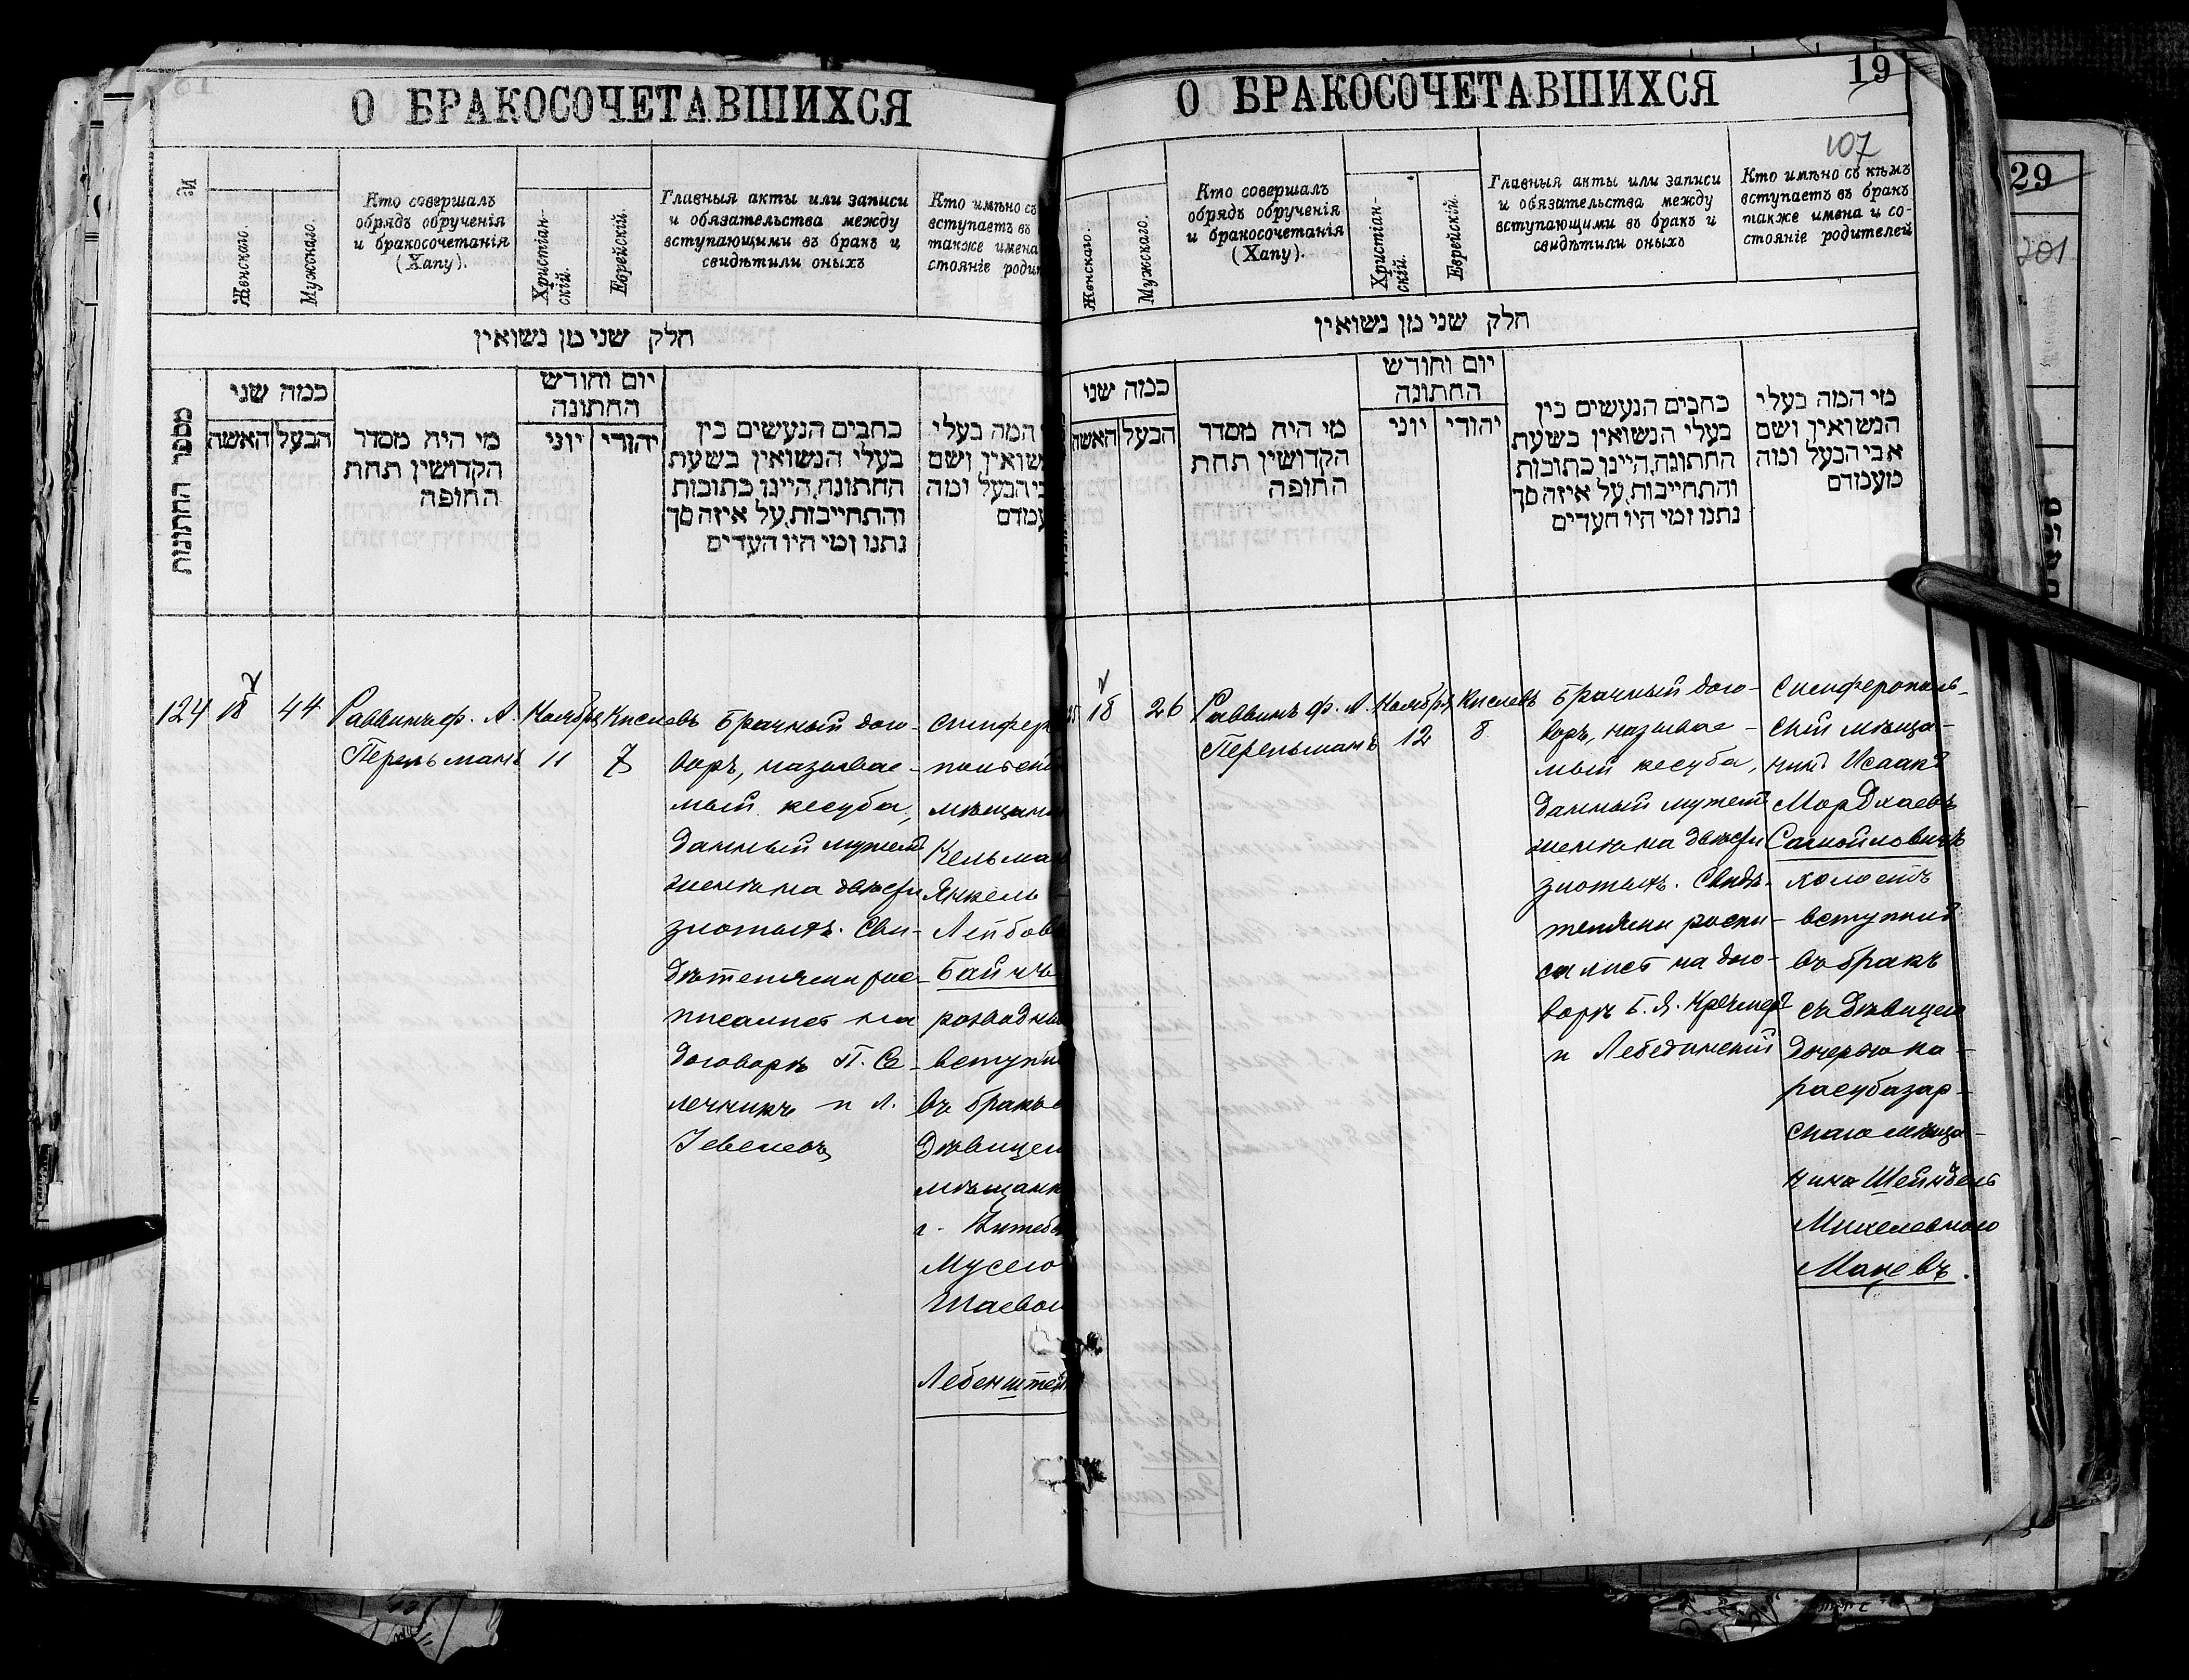 О БРАКОСОЧЕТАВШИХСЯ
№
Женскаго.
Мужскаго.
Кто совершалъ
обрядъ обрученія
и бракосочетанія
(Хапу).
Христіан-
скій.
Еврейскій.
Главныя акты или записи
и обязательства между
вступающими въ бракъ и
свидѣтили оныхъ
Кто имѣно съ
вступаетъ въ
также имена
стояніе роди
חלק שני מן נשואין
מספר החתונות
כמה שני
האשה
הבעל
מי היה מסדר
הקדושין תחת
החופה
יום וחודש
החתונה
יוני
יהודי
כתבים הנעשים בין
בעלי הנשואין בשעת
החתונה, היינו כתובות
והתחייבות, על איזה סך
נתנו ומי היו העדים
המה בעלי
שואין, ושם
בי הבעל ומה
עמדם
124
18
44
Раввинъ ф. А.
Перельманъ
Ноября
11
Кислевъ
7
Брачный дого-
воръ, называе-
мый кесуба,
данный мужемъ
женѣ на двѣсти
злотыхъ. Сви-
дѣтелями рос-
писались на
договорѣ П. Се-
лечникъ и Л.
симфер
польскій
мѣщани
Кельман
Янкель
Лейбов
Байчъ
разводный
вступи
въ бракъ с
дѣвицею
мѣщанк
г. Витебс
Мусею
Шаевой
Лебенштей
О БРАКОСОЧЕТАВШИХСЯ
19
107
Женскаго.
Мужскаго.
Кто совершалъ
обрядъ обрученія
и бракосочетанія
(Хапу).
Христіан-
скій.
Еврейскій.
Главныя акты или записи
и обязательства между
вступающими въ бракъ и
свидѣтили оныхъ
Кто имѣно съ кѣмъ
вступаетъ въ бракъ
также имена и со-
стояніе родителей
חלק שני מן נשואין
כמה שני
האשה
הבעל
מי היה מסדר
הקדושין תחת
החופה
יום וחודש
החתונה
יוני
יהודי
כתבים הנעשים בין
בעלי הנשואין בשעת
החתונה, היינו כתובות
והתחייבות, על איזה סך
נתנו ומי היו העדים
מי המה בעלי
הנשואין, ושם
אבי הבעל ומה
מעמדם
18
26
Раввинъ ф. А.
Перельманъ
Ноября
12
Кислевъ
8
Брачный дого-
воръ, называе-
мый кесуба,
данный мужемъ
женѣ на двѣсти
злотыхъ. Свидѣ-
телями роспи-
сались на дого-
ворѣ Б. Я. Кречмеръ
и Лебединскій
Симферополь-
скій мѣща-
нинъ Исаакъ
Мордхаевъ
Самойловичъ
холостъ
вступилъ
въ бракъ
съ дѣвицею
дочерью ка-
расубазар-
скаго мѣща-
нина Шейндель
Михелевною
Мацевъ.
29
201